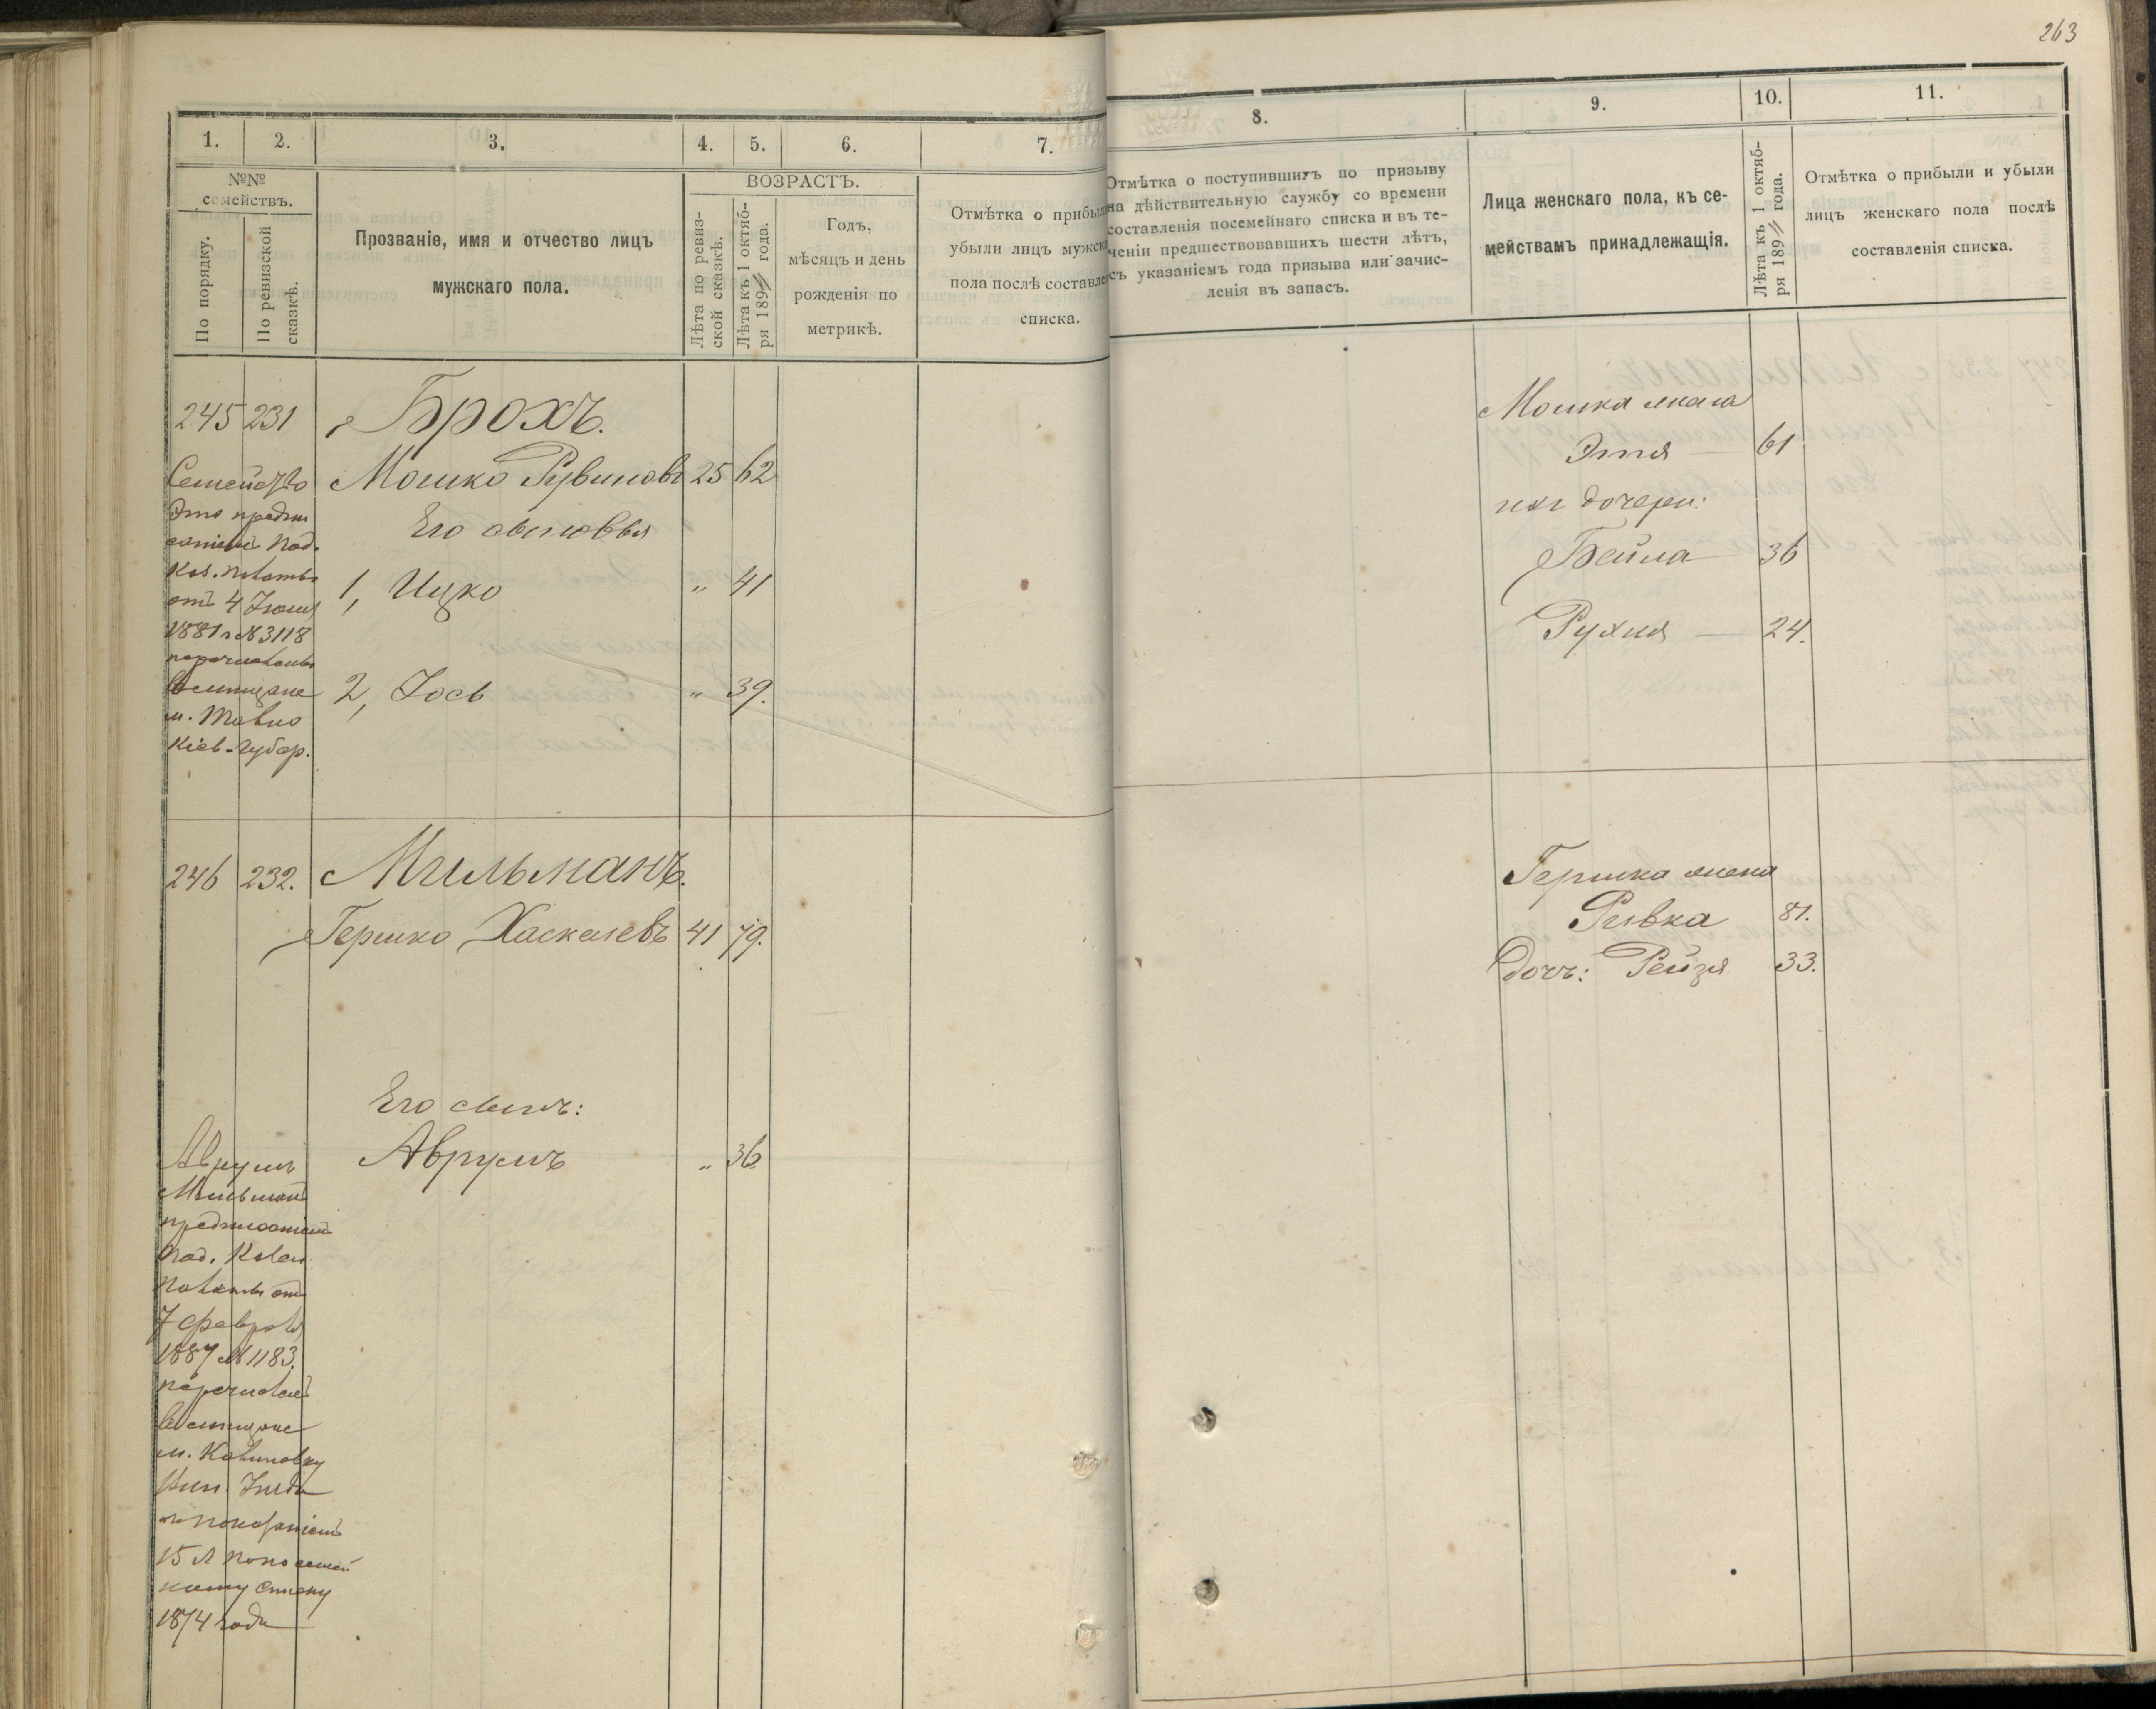 263
1.
2.
3.
4.
5.
6.
7.
8.
9.
10.
11.
№№
семействъ.
По порядку.
По ревизской
сказкѣ.
Прозваніе, имя и отчество лицъ
мужскаго пола.
ВОЗРАСТЪ.
Лѣта по ревиз-
ской сказкѣ.
Лѣта къ 1 октяб-
ря 189 года.
Годъ,
мѣсяцъ и день
рожденія по
метрикѣ.
Отмѣтка о прибыли
убыли лицъ мужска
пола послѣ составле
списка.
Отмѣтка о поступившихъ по призыву
на дѣйствительную службу со времени
составленія посемейнаго списка и въ те-
ченіи предшествовавшихъ шести лѣтъ,
съ указаніемъ года призыва или зачис-
ленія въ запасъ.
Лица женскаго пола, къ се-
мействамъ принадлежащія.
Лѣта къ 1 октяб-
ря 189 года.
Отмѣтка о прибыли и убыли
лицъ женскаго пола послѣ
составленія списка.
245 231 Брохъ.
Семейство
Это предпи
саніемъ Под.
Каз. Палаты
отъ 4 Іюня
1881 г № 3118
перечислены
въ мѣщане
м.
Кіев. Губер.
Мошко Рувиновъ 25 62
Его сыновья
1, Ицко " 41
2, Іось " 39.
Мошка жена
Этя — 61
ихъ дочери:
Бейла 36
Рухля — 24.
246 232. Мильманъ.
Гершко Хаскелевъ 41 79.
Его сынъ:
Аврумъ " 36
Гершка жена
Ривка 81.
Дочь: Рейзя 33.
Аврумъ
Мильманъ
предписаніемъ
Под. Казен
Палаты отъ
7 Февраля
1887 № 1183.
перечисленъ
въ мѣщане
м. Калиновку
Вин. уѣзда
съ показаніемъ
15 л по посемей
ному списку
1874 года